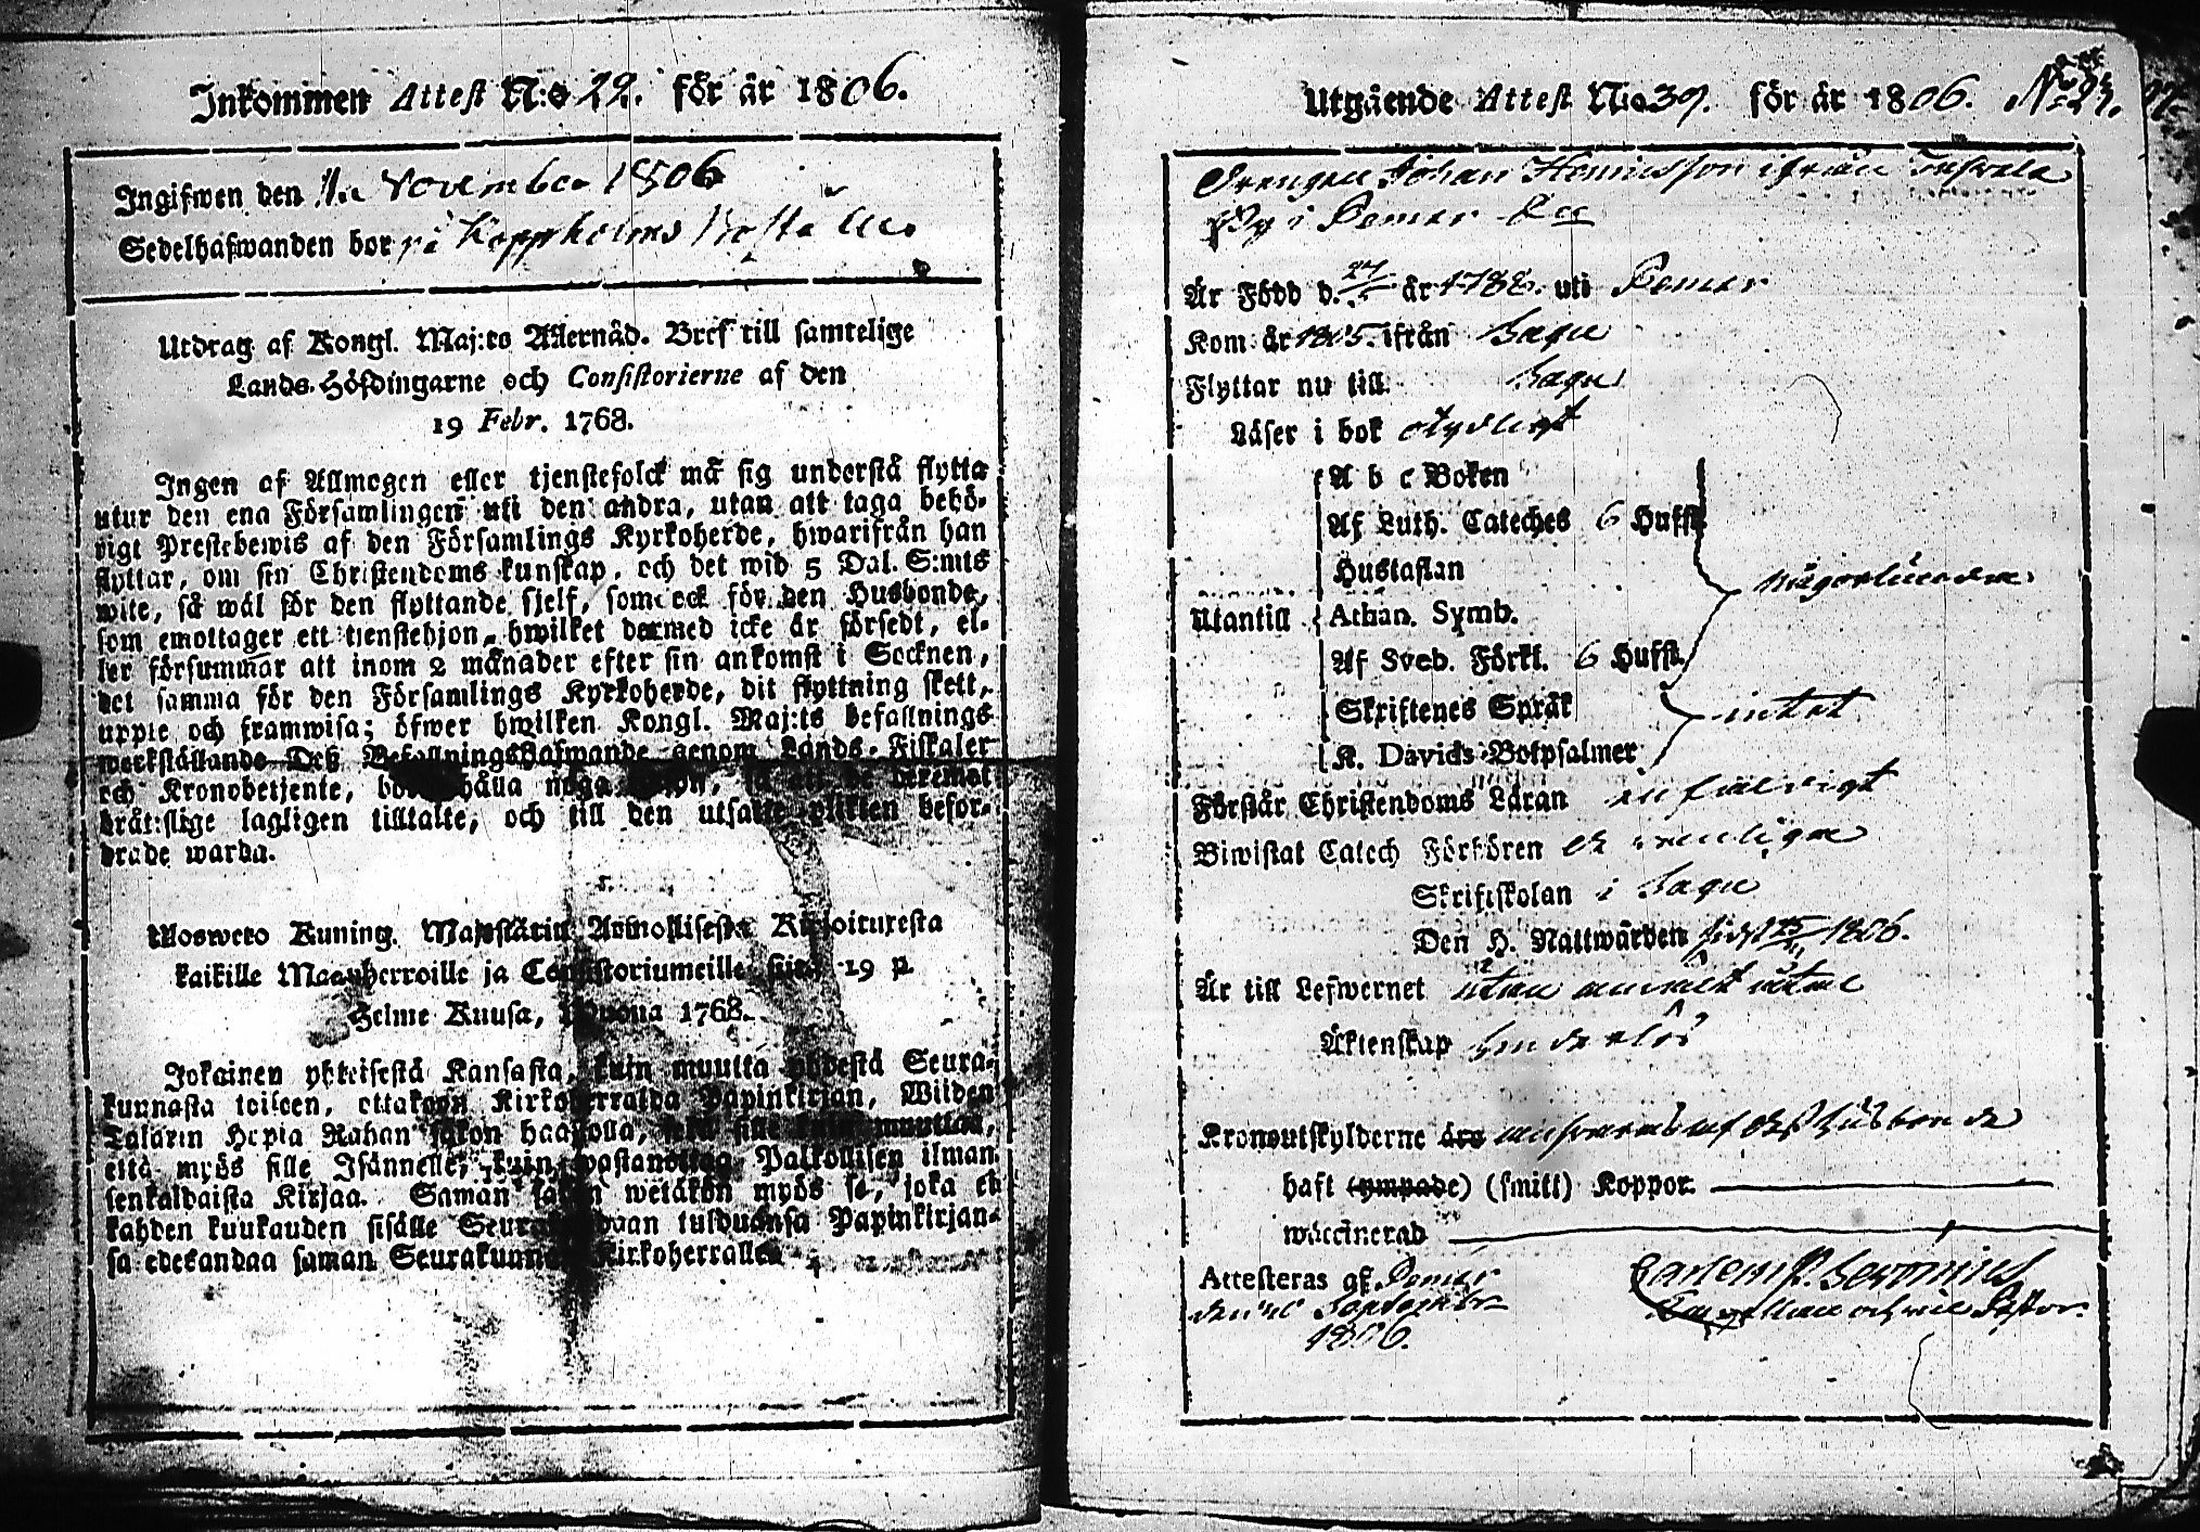 Inkommen Attest N:o 22. för år 1806.
Ingifwen den 1 November 1806
Sedelhafwanden bor på Koppholms Boställe.
Utdrag af Kongl. Maj:ts Allernåd. Bref till samtelige
Lands-Höfdingarne och Consistorierne af den
19 Febr. 1768.
Ingen af Allmogen eller tjenstefolck må sig understå flytta
utur den ena Församlingen uti den andra, utan att taga behö-
rigt Prestebewis af den Församlings Kyrkoherde, hwarifrån han
flyttar, om sin Christendoms kunskap, och det wid 5 Dal. S:mts
wite, så wäl för den flyttande sjelf, som ock för den Husbonde,
som emottager ett tjenstehjon, hwilket dermed icke är försedt, el-
ler försummar att inom 2 månader efter sin ankomst i Socknen,
det samma för den Församlings Kyrkoherde, dit flyttning skett,
uppte och framwisa; öfwer hwilken Kongl. Maj:ts befallnings
werkställande Deß Befallningshafwande genom Lands-Fiskaler
och Kronobetjente, hålla noga så att de deremot
bråtslige lagligen tilltalte, och till den utsatte plikten befor-
drade warda.
Uloswero Kuning. Majestätin Armollisesta Kirjoituxesta
kaikille Maanherroille ja Consistoriumeille siitä 19 p.
Helme Kuusa, Wuona 1768.
Jokainen yhteisestä Kansasta, kuin muutta yhdestä Seura-
kunnasta toiseen, ottakoon Kirkoherralda Papinkirjan, Wiiden
Talarin Hopia Rahan sakon haastolla, sekä sille kuin muuttaa,
että myös sille Isännelle, kuin wastanottaa Palkollisen ilman
senkaldaista Kirjaa. Saman sakon wetäkön myös se, joka ei
kahden kuukauden sisälle Seurakundaan tulduansa Papinkirjan-
sa edeskandaa saman Seurakunnan Kirkoherrallen
Utgående Attest N:o 39. för år 1806. No 23.
Drengen Johan Henricsson ifrån
By i Pemar
Är Född d. 27 år 1788. uti Pemar
Kom år 1805. ifrån Sagu
Flyttar nu till Sagu
Läser i bok otydligt
A b c Boken
Af Luth. Cateches 6 Hufst.
Hustaflan
någorlunda
Utantill Athan. Symb.
Af Sveb. Förkl. 6 Hufst.
Skriftenes Språk
intet
K. Davids Botpsalmer
Förstår Christendoms Läran enfaldigt
Biwistat Catech Förhören
Skriftskolan i Sagu
Den H. Nattwarden sidst 1806.
Är till Lefwernet utan anmärkt
Äktenskap
Kronoutskylderne äro answaras af deß husbonde
haft (ympade) (smitt) Koppor.
waccinerad
Attesteras af Pemar
den September
1806.
Pastor.